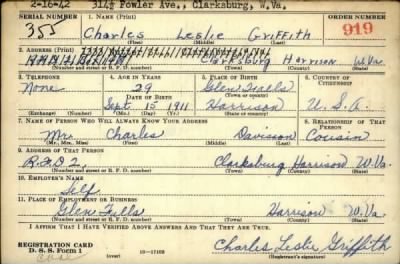 2-16-42 314½ Fowler Ave., Clarksburg, W.Va.
SERIAL NUMBER 1. NAME (Print) ORDER NUMBER
355 Charles Leslie Griffith 919
(First) (Middle) (Last)
2. ADDRESS (Print)
Clarksburg Harrison W.Va.
(Number and street or R. F. D. number) (Town) (County) (State)
3. TELEPHONE 4. AGE IN YEARS 5. PLACE OF BIRTH 6. COUNTRY OF CITIZENSHIP
None 29 Glen Falls
DATE OF BIRTH (Town or county)
Sept 15 1911 Harrison U.S.A.
(Exchange) (Number) (Mo.) (Day) (Yr.) (State or country)
7. NAME OF PERSON WHO WILL ALWAYS KNOW YOUR ADDRESS 8. RELATIONSHIP OF THAT PERSON
Mr. Charles Davison Cousin
(Mr., Mrs., Miss) (First) (Middle) (Last)
9. ADDRESS OF THAT PERSON
R.F.D 2 Clarksburg Harrison W.Va.
(Number and street or R. F. D. number) (Town) (County) (State)
10. EMPLOYER'S NAME
Self
11. PLACE OF EMPLOYMENT OR BUSINESS
Glen Falls Harrison W.Va.
(Number and street or R. F. D. number) (Town) (County) (State)
I AFFIRM THAT I HAVE VERIFIED ABOVE ANSWERS AND THAT THEY ARE TRUE.
REGISTRATION CARD
D. S. S. Form 1 Charles Leslie Griffith
(over) (Registrant's signature)